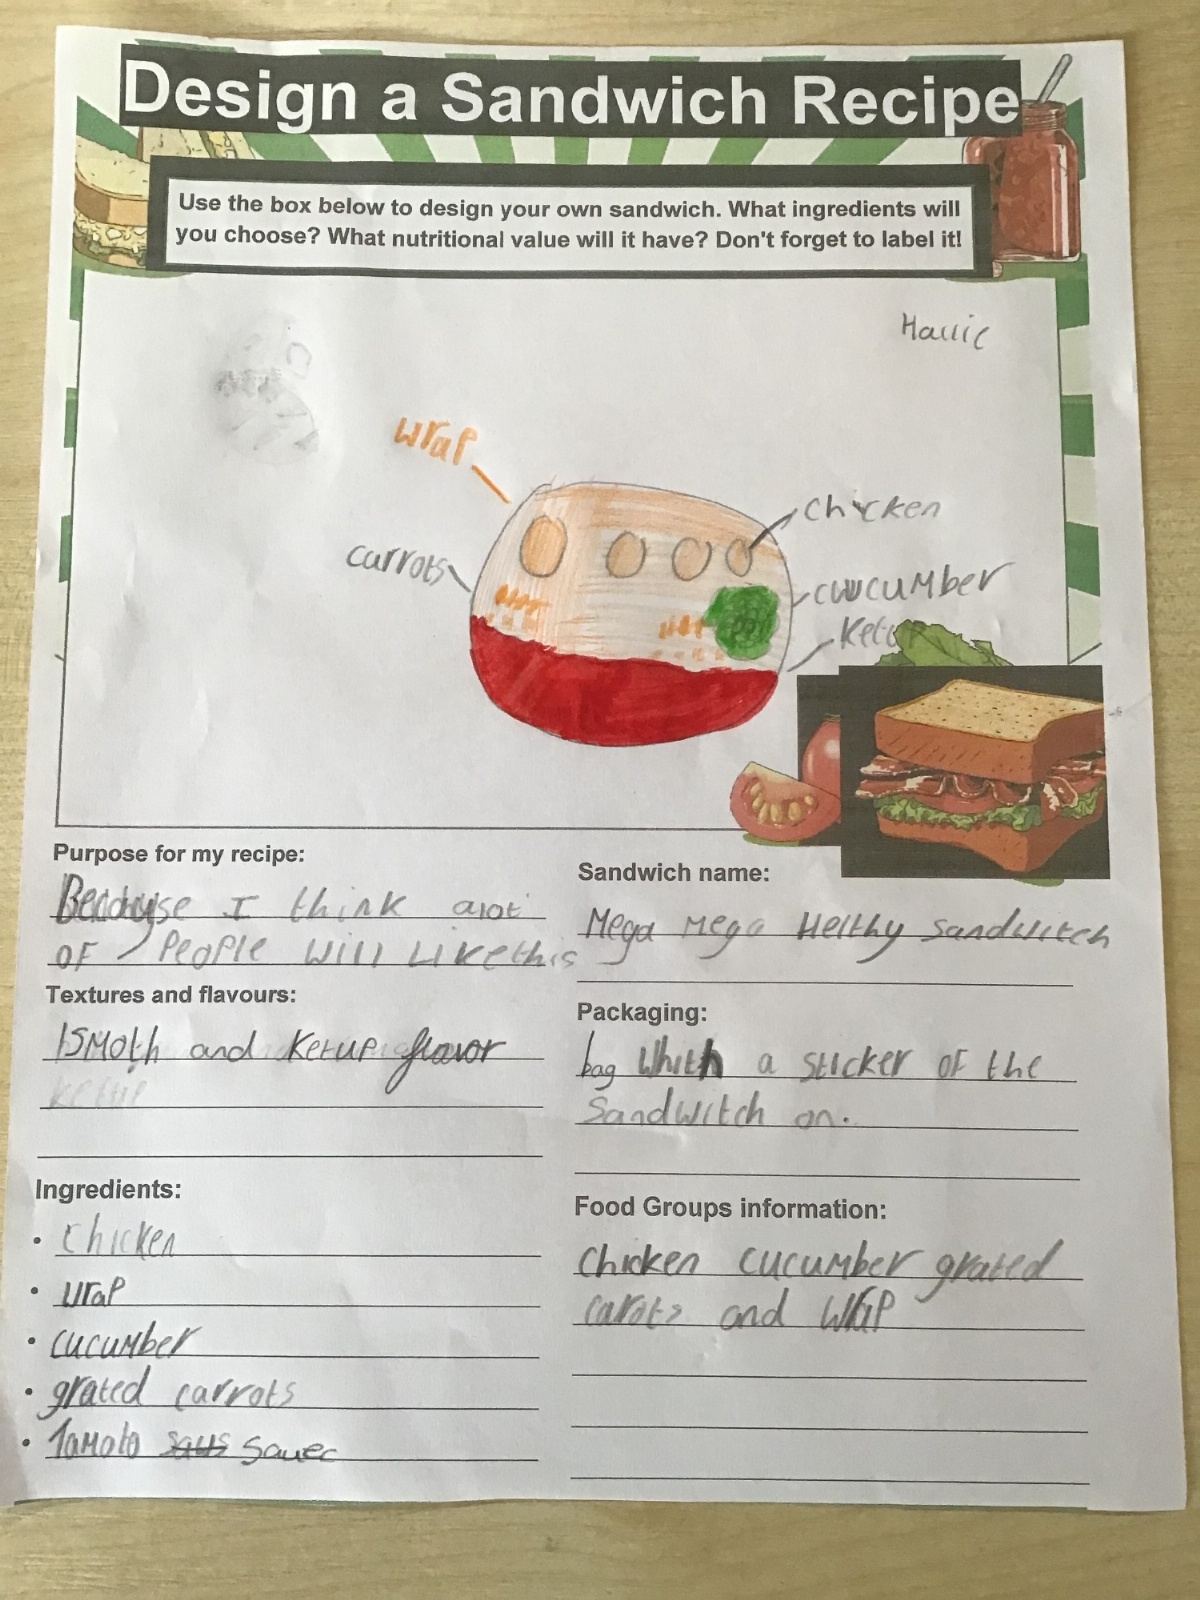 Design a Sandwich Recipe
Use the box below to design your own sandwich. What ingredients will
you choose? What nutritional value will it have? Don't forget to label it!
wrap
chicken
carrots
cuucumber
Purpose for my recipe:
I think alot
OF People will like this
Sandwich name:
Mega Mega Helthy Sandwitch
Textures and flavours:
Smoth and Ketup flavor
ketup
Packaging:
bag Whith a sticker of the
Sandwitch on.
Ingredients:
• Chicken
• wrap
• cucumber
• grated carrots
• Tamato Sauec
Food Groups information:
Chicken cucumber grated
carots and wrap